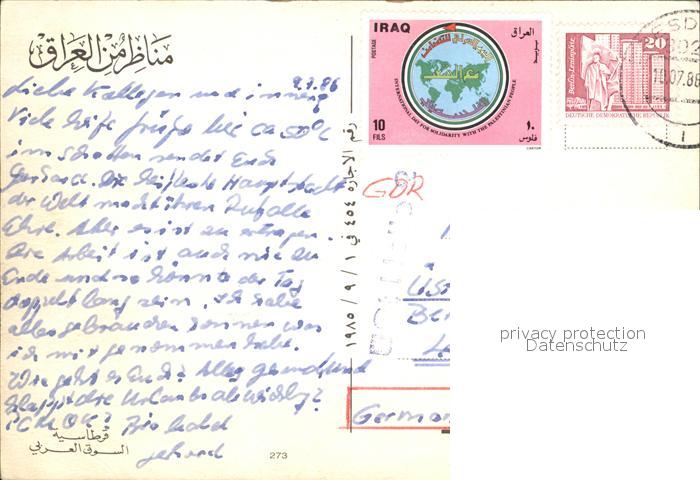 مناظر من العراق
9.7.86
liebe Kollegen und
viele heiße Grüße bei ca 50°C
im Schatten sendet Euch
Gerhard. Die heißeste Hauptstadt
der Welt macht ihren
Ehre. Aber es ist zu ertragen.
Die Arbeit ist auch nie zu
Ende und so könnte der Tag
doppelt lang sein. Ich habe
alles gebrauchen können was
ich mitgenommen habe.
Wie geht es Euch? Alles gesund und
klappt die
Bis bald
Gerhard
قرطاسية
السوق العربي
273
رقم الاجازه ٤٥٤ في ١ / ٩ / ١٩٨٥
IRAQ
العراق
POSTAGE
بريد
INTERNATIONAL DAY FOR SOLIDARITY WITH THE PALESTINIAN PEOPLE
10
FILS
١٠
فلوس
20
Berlin-Leninplatz
DEUTSCHE DEMOKRATISCHE REPUBLIK
10.07.86
GDR
German
privacy protection
Datenschutz